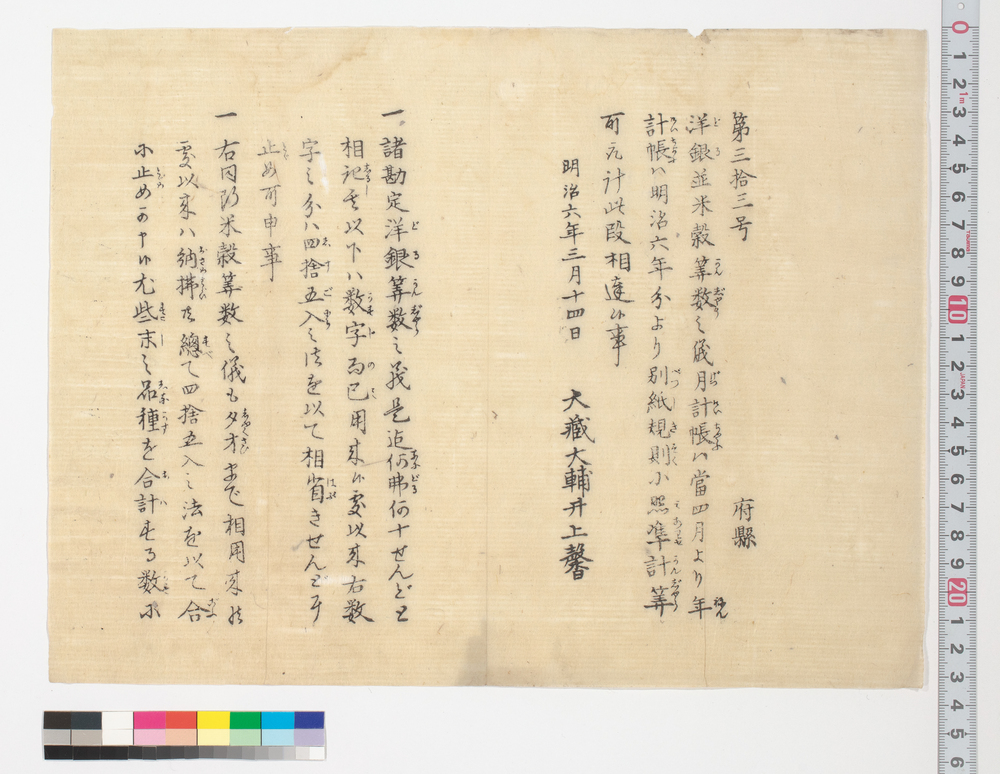 第三拾三号
府縣
洋銀並米穀算数之儀月計帳ハ當四月より年
計帳ハ明治六年分より別紙規則ニ照準計算
可致計此段相達候事
明治六年三月十四日
大藏大輔井上馨
一 諸勘定洋銀算数之義是迄何弗何十せんどと
相記其以下ハ数字而已用来候處以来右数
字之分ハ四捨五入之法を以て相省きせんどニ
止め可申事
一 右同断米穀算数之儀も夕才まで相用来候
處以来ハ納拂共總て四捨五入之法を以て合
ニ止め可申候尤些末之品種を合計する数ニ